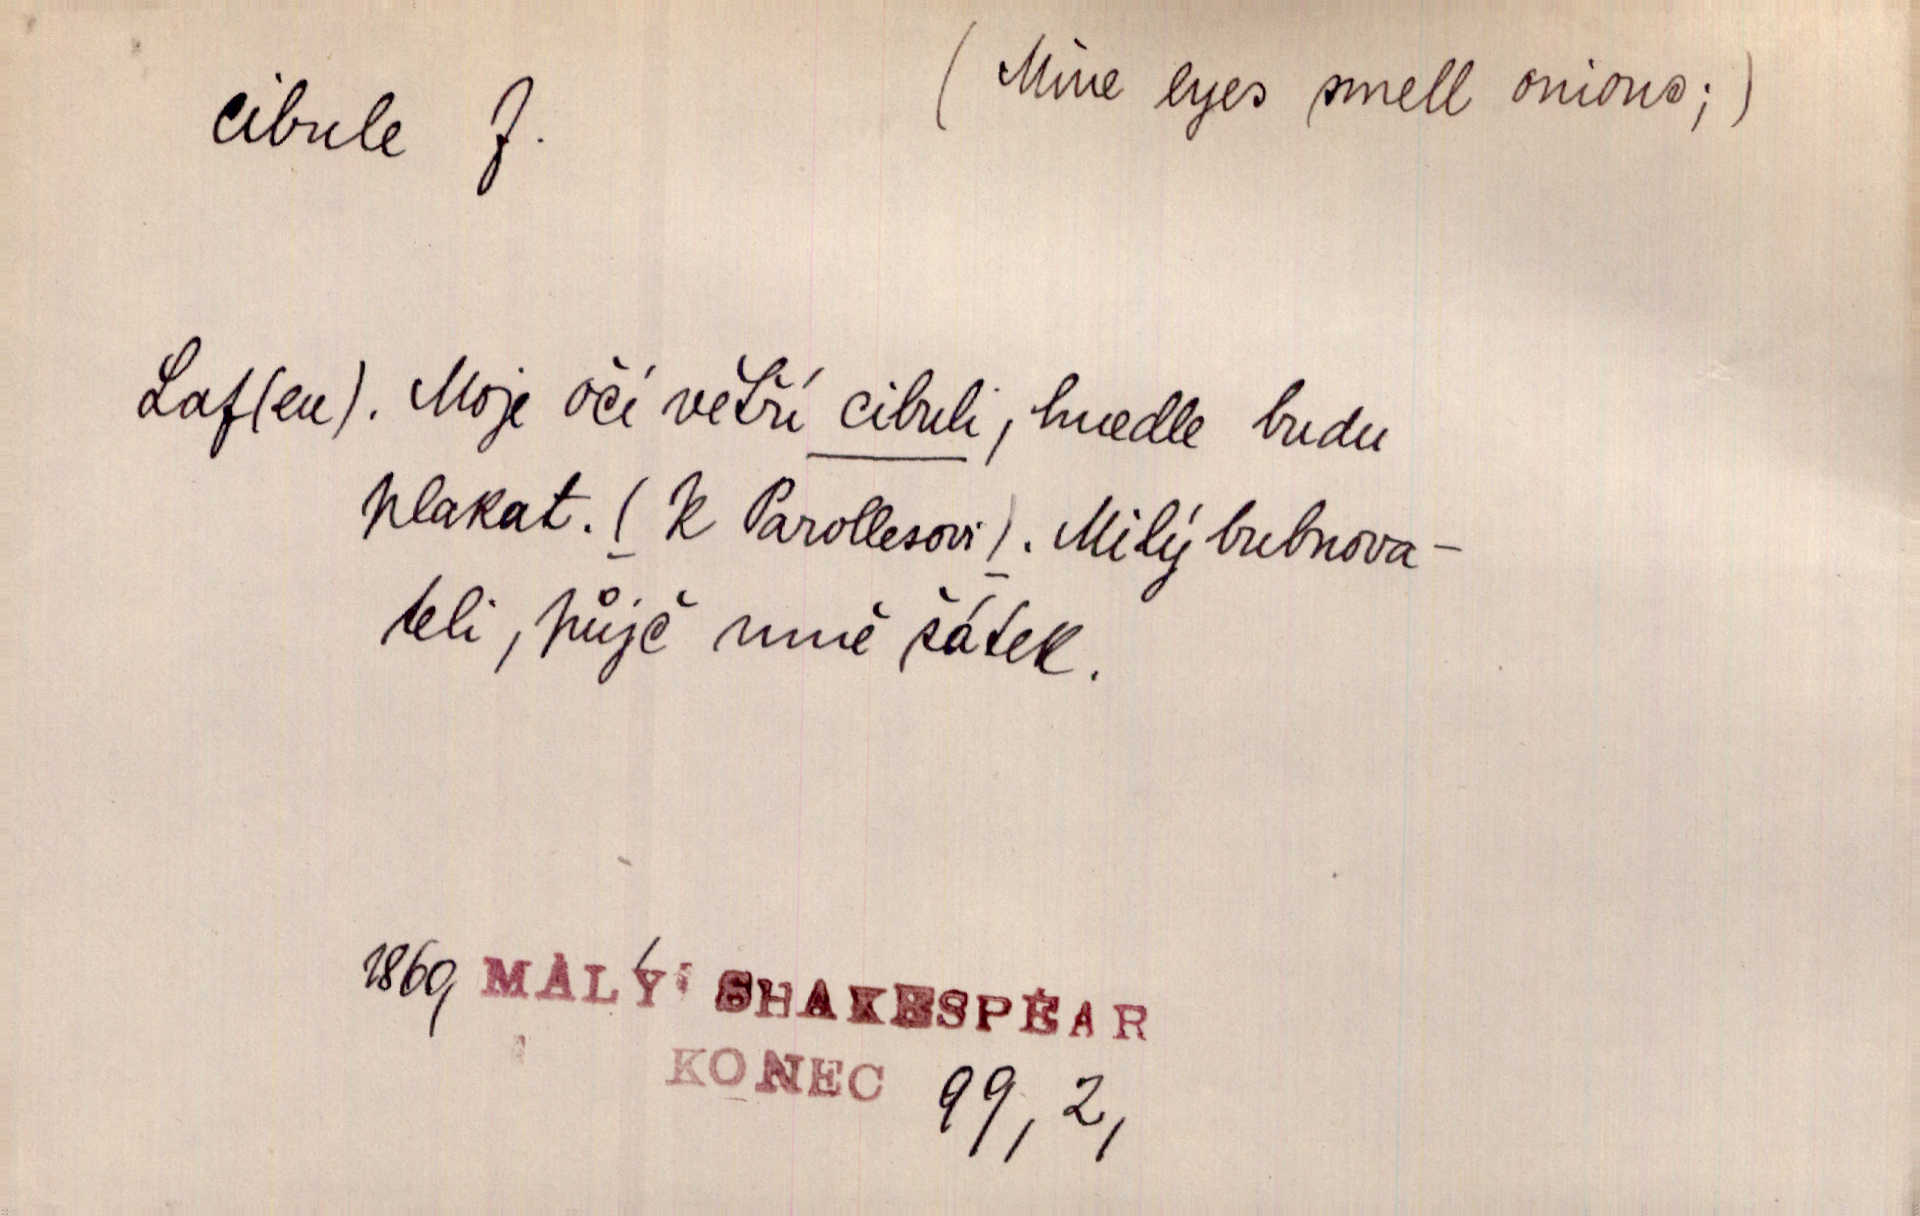 cibule f.
(Mine eyes smell onions;)
Laf(eu). Moje oči větří cibuli, hnedle budu
plakat. (K Parollesovi). Milý bubnova-
teli, půjč mně šátek.
1869 MALÝ SHAKESPEAR
KONEC 99, 2,